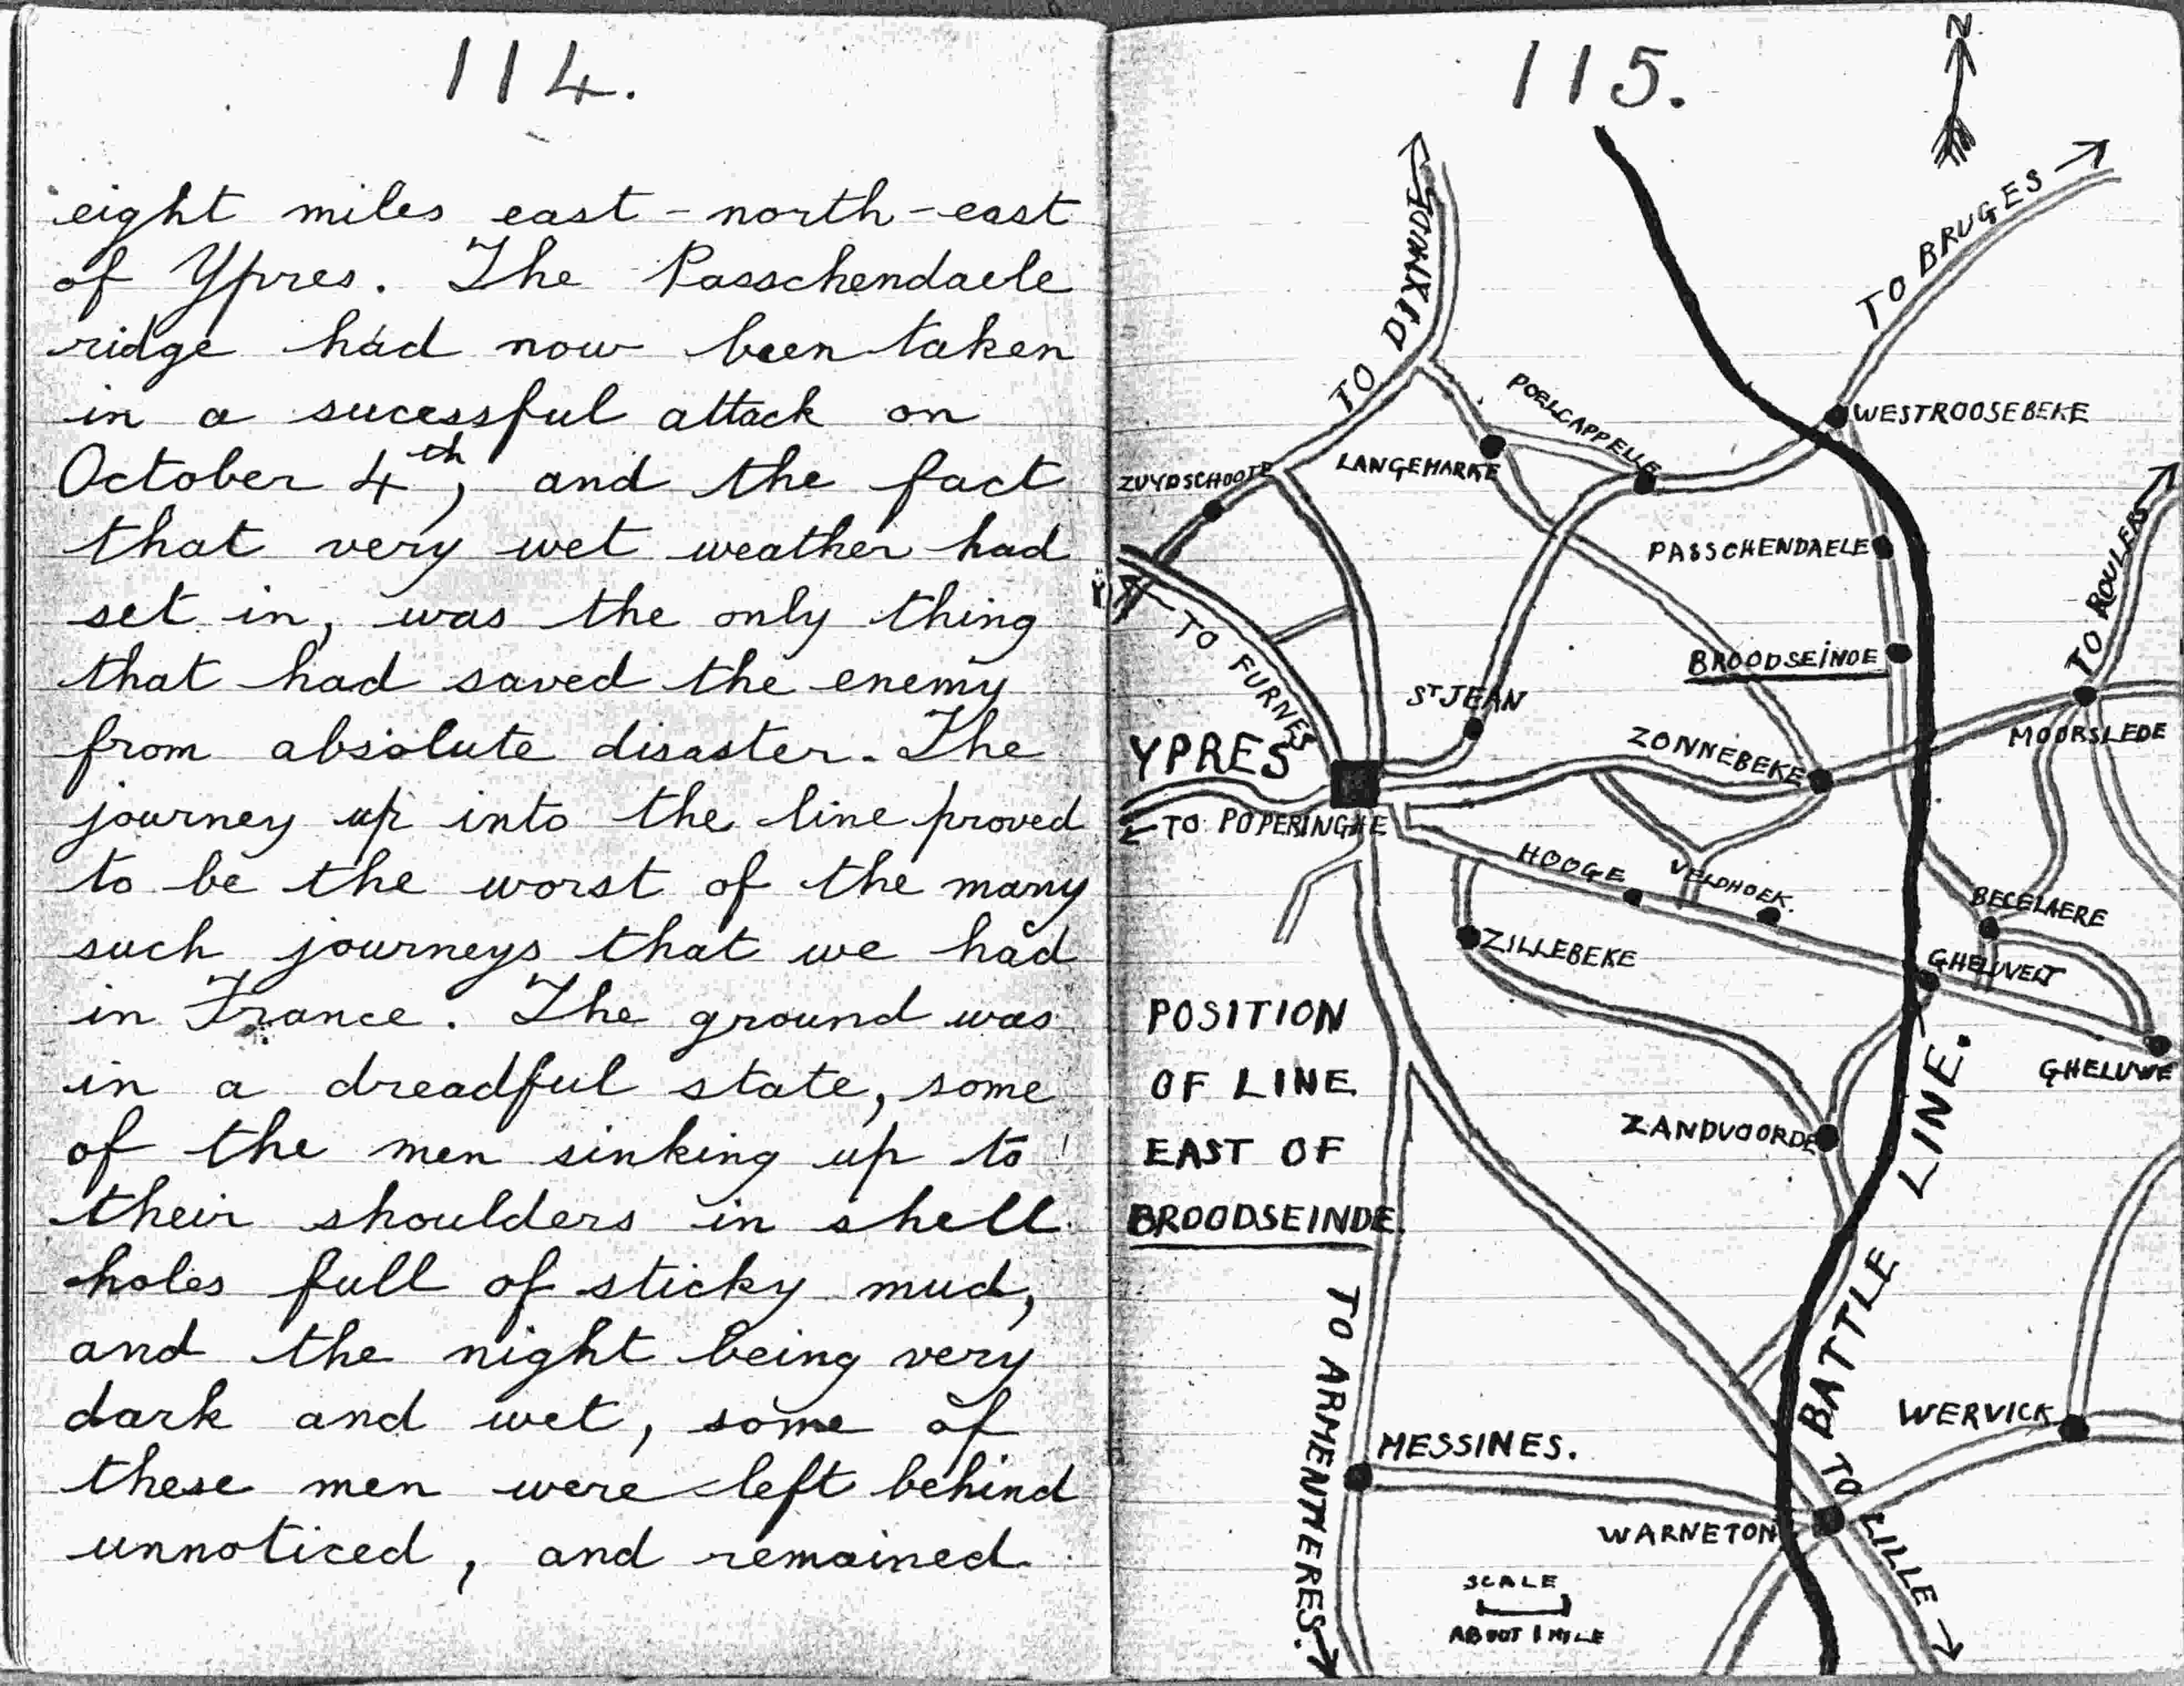 114.
eight miles east-north-east
of Ypres. The Passchendaele
ridge had now been taken
in a sucessful attack on
October 4th, and the fact
that very wet weather had
set in, was the only thing
that had saved the enemy
from absolute disaster. The
journey up into the line proved
to be the worst of the many
such journeys that we had
in France. The ground was
in a dreadful state, some
of the men sinking up to
their shoulders in shell
holes full of sticky mud,
and the night being very
dark and wet, some of
these men were left behind
unnoticed, and remained
115.
N.
TO DIXMUDE
TO BRUGES
POELCAPPELLE
WESTROOSEBEKE
ZUYDSCHOOTE
LANGEMARKE
PASSCHENDAELE
TO ROULERS
TO FURNES
BROODSEINDE
ST JEAN
MOORSLEDE
YPRES
ZONNEBEKE
TO POPERINGHE
HOOGE
VELDHOEK.
BECELAERE
ZILLEBEKE
GHELUVELT
POSITION
OF LINE
EAST OF
BROODSEINDE.
GHELUWE
ZANDVOORDE
BATTLE LINE.
TO ARMENTIERES.
WERVICK
MESSINES.
WARNETON
TO LILLE
SCALE
ABOUT 1 MILE